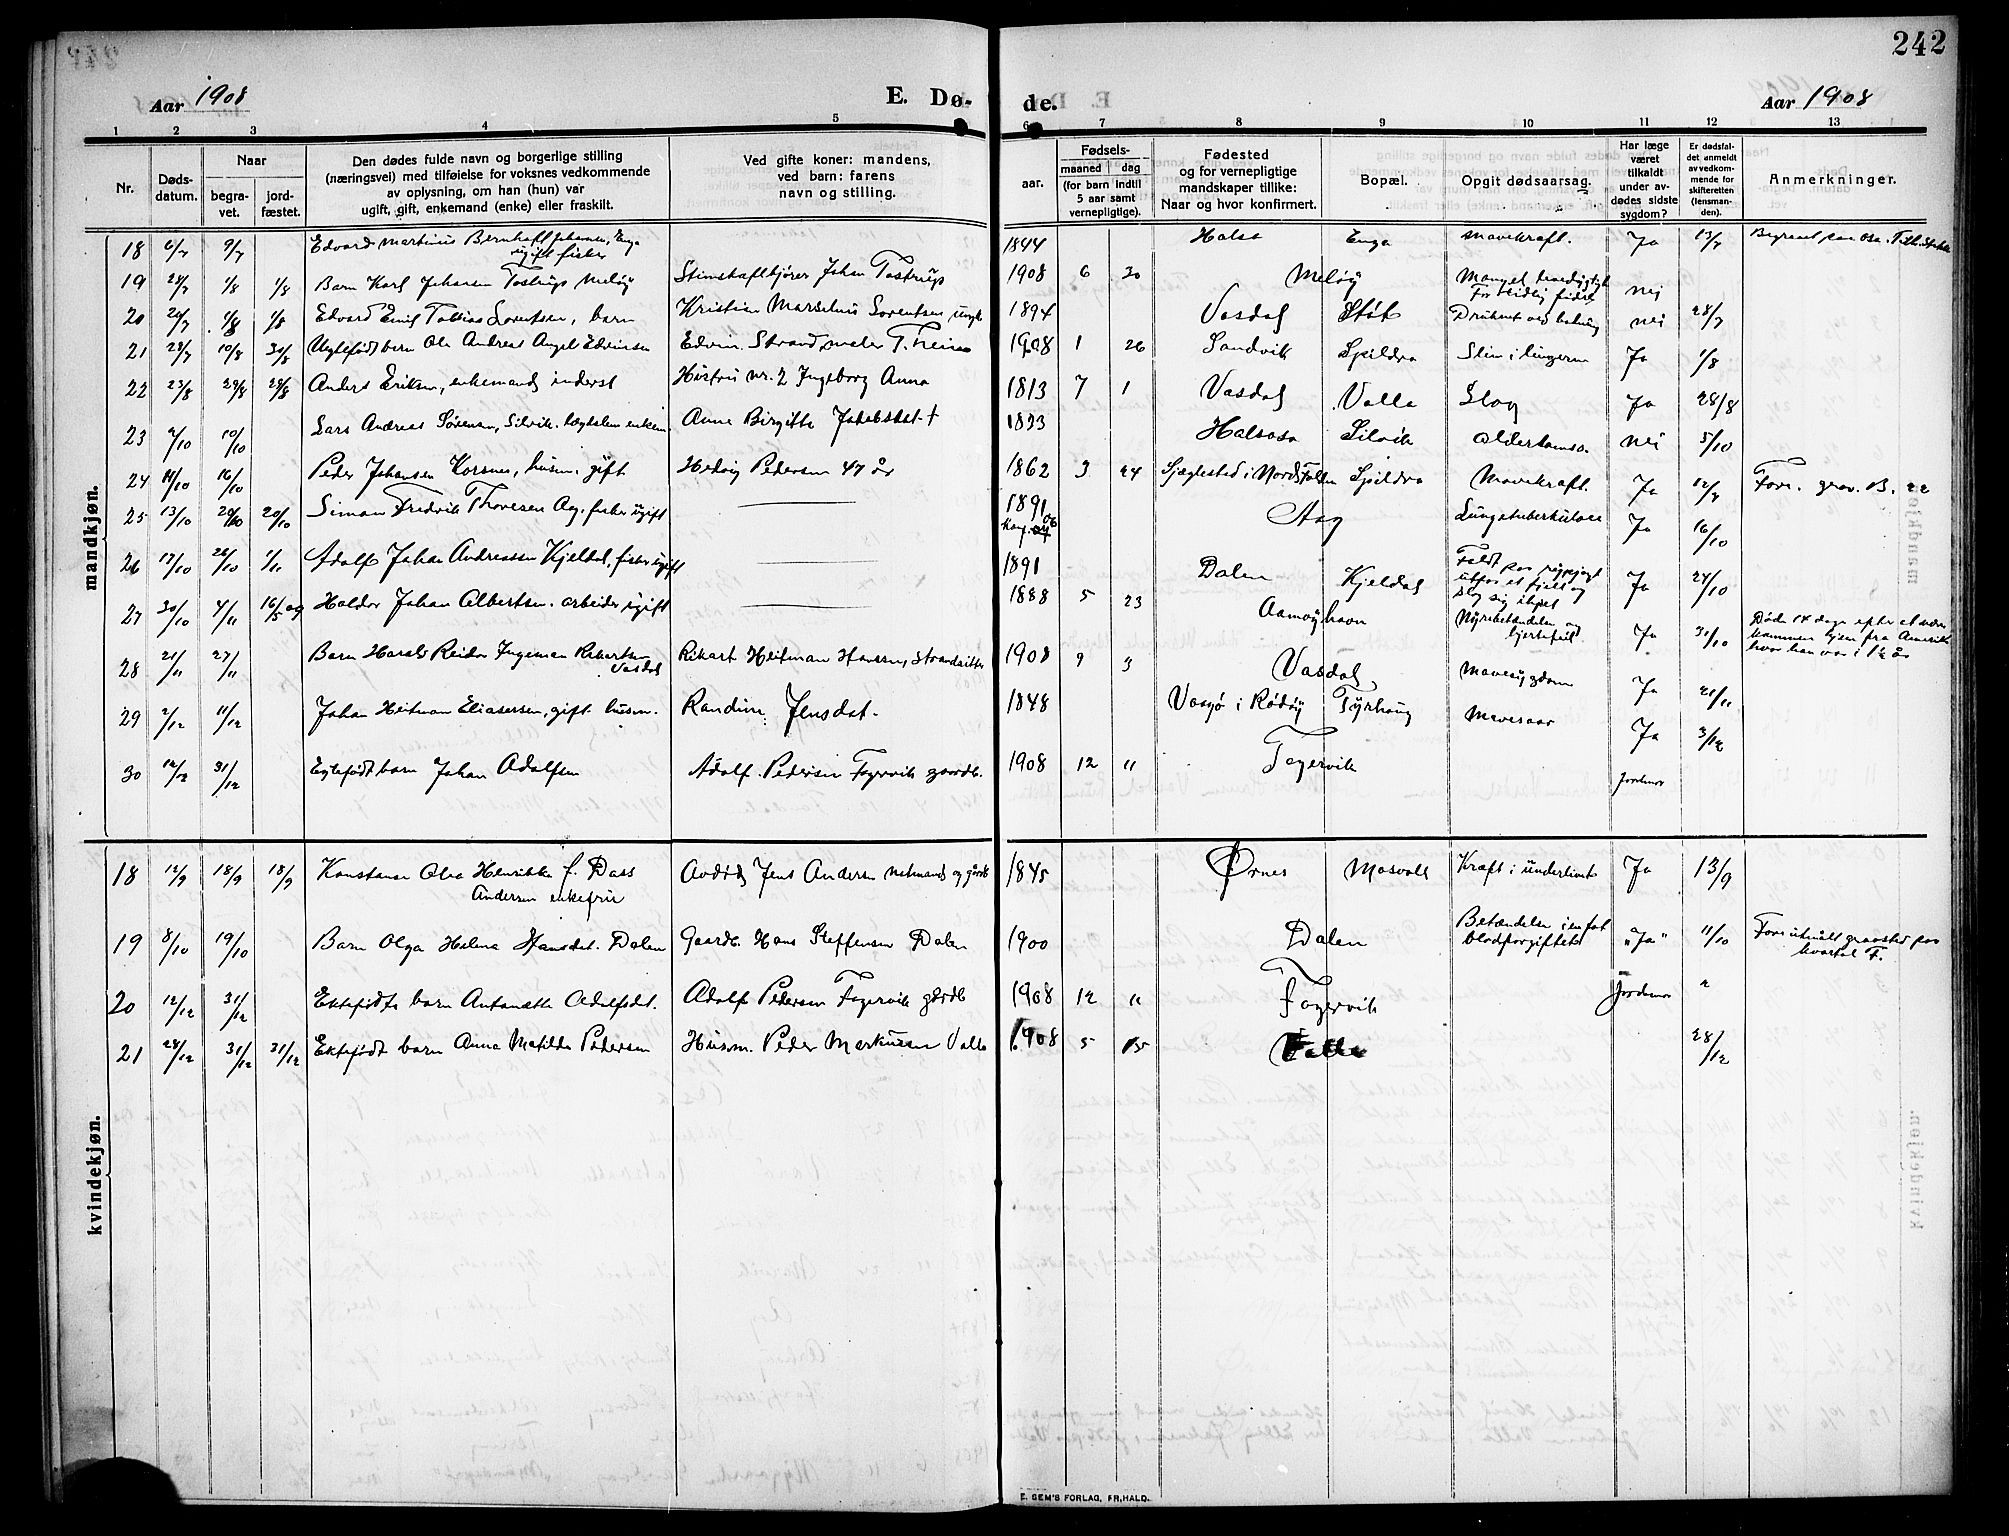 242
Aar 1908
E. Dø-
de.
Aar 1908
1 2 3 4 5 6 7 8 9 10 11 12 13
Nr.
Døds-
datum.
Naar
begra-
vet.
jord-
fæstet.
Den dødes fulde navn og borgerlige stilling
(næringsvei) med tilføielse for voksnes vedkommende
av oplysning, om han (hun) var
ugift, gift, enkemand (enke) eller fraskilt.
Ved gifte koner: mandens,
ved barn: farens
navn og stilling.
aar.
Fødsels-
maaned dag
(for barn indtil
5 aar samt
vernepligtige).
Fødested
og for vernepligtige
mandskaper tillike:
Naar og hvor konfirmert.
Bopæl.
Opgit dødsaarsag.
Har læge
været
tilkaldt
under av-
dødes sidste
sygdom?
Er dødsfal-
det anmeldt
av vedkom-
mende for
skifteretten
(lensman-
den).
Anmerkninger.
mandkjøn.
18 6/7 9/7 Edvard Martinus Bernhoft Johansen, Enga ugift fisker 1844 Halsa Enga Mavekræft. Ja 13/7
19 1/8 1/8 Barn Karl Johansen Tostrup Meløy Johan Tostrup 1908 6 20 Meløy Mangel For tidlig født nei
20 1/8 1/8 Edvard Emil Tobias Sorentsen, barn Kristian Marselius Sorentsen 1894 Vasdal Støt Druknet ved badning nei 28/7
21 28/7 10/8 30/8 Uegtefødt barn Ole Andreas Angel Edvinsen Edvin Strand 1908 1 26 Sandvik Spildra Slim i lungerne Ja 1/8
22 23/8 29/8 29/8 Anders Eriksen, enkemand, inderst Hustru nr. 2 Ingeborg Anna 1813 7 1 Vasdal Valla Slag Ja 28/8
23 2/10 10/10 Lars Andreas Sørensen, Silvik. lægdslem enkem Anne Birgitte Jakobsdat † Halsosa Silvik Alderdomss. nei 5/10
24 14/10 16/10 Peder Johansen Korsnes, husm. gift Hedvig Pedersen 47 år 1862 3 24 Sjæglested i Nordfolden Spildra Mavekræft. Ja Forr. grav. B. 22
25 13/10 20/10 20/10 Simon Fredrik Thoresen Aag. fisker ugift 1891 Konf. 06 Aag Lungetuberkulose Ja 16/10
26 17/10 26/10 1/11 Adolf Johan Andreassen Kjeldal, fisker ugift 1891 Dalen Kjeldal Faldt paa rypejagt utfor et fjeld og slog sig ihjel Ja 24/10
27 30/10 4/11 16/5 09 Haldor Johan Albertsen. arbeider ugift 1888 5 23 Aamøyhavn Nyrebetændelse og hjertefeil Ja 31/10 Døde 14 dage efter at være kommen hjem fra Amerika hvor han var i 1½ år
28 21/11 27/11 Barn Harald Reidar Ingeman Rikartsen Vasdal Rikart Heitman Hansen, Strandsitter 1908 9 3 Vasdal Mavesygdom Ja 21/11
29 2/12 11/12 Johan Heitman Eliasersen, gift husm. Randine Jensdat. 1848 Vaagø i Rødøy Tyrhaug Mavesaar Ja 3/12
30 12/12 31/12 Egtefødt barn Johan Adolfsen Adolf Pedersen Fagervik gaardb. 1908 12 11 Fagervik Jordmor
kvindekjøn.
18 12/9 18/9 18/9 Konstanse Olea Henrikke f. Dass Andersen enkefrue Avdøde Jens Andersen 1845 Ørnes Mosvold Kræft i underlivet Ja 13/9
19 8/10 19/10 Barn Olga Helena Hansdat. Dalen Gaardb. Hans Steffensen Dalen 1900 Dalen Betændelse i en fot blodforgiftelse "Ja" 11/10 kvartal F.
20 12/12 31/12 Ektefødte barn Antonette Adolfsdt. Adolf Pedersen Fagervik gårdb 1908 12 11 Fagervik Jordmor "
21 28/12 31/12 31/12 Ektefødt barn Anna Matilde Pedersen Husm. Peder Markussen Valla 1908 5 15 Valla 28/12
E. SEM'S FORLAG, FR.HALD.